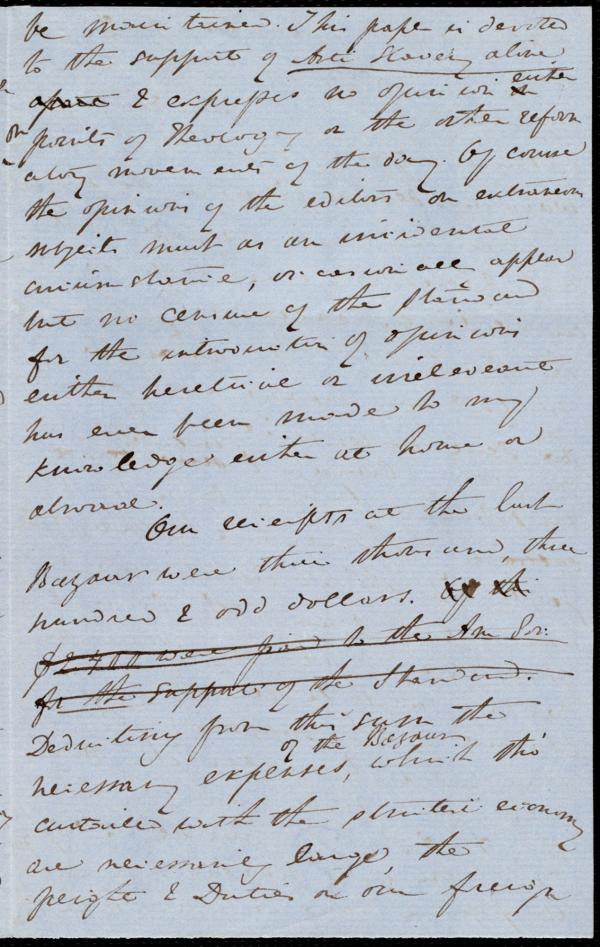 be maintained. This paper is devoted
to the support of Anti Slavery alone
apart & expresses no opinion either in
points of Theology or the other reform
atory movements of the day. Of course
the opinions of the editors on extraneous
subjects must as an incidental
circumstance, occasionally appear
but no censure of the Standard
for the introduction of opinions
either heretical or irrelevant
has ever been made to my
knowledge either at home or
abroad.
Our receipts at the last
Bazaar were three thousand, three
hundred & odd dollars. Of this
$2400 were paid to the Am Soc:
for the support of the Standard.
Deducting from this sum the
necessary expenses, of the Bazaar which tho'
curtailed with the strictest economy
are necessarily large, the
freight & Duties on our foreign